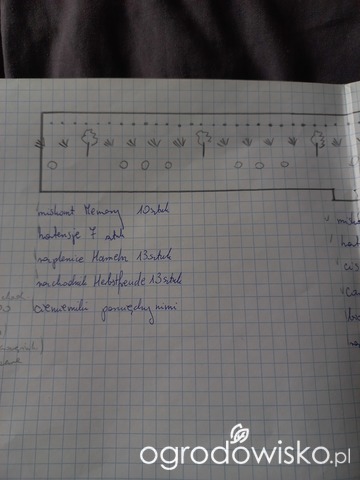 miskant Memory 10 sztuk
hortensje 7 sztuk
rozplenice Hameln 13 sztuk
rozchodnik Herbstfreude 13 sztuk
ciemierniki pomiędzy nimi
ogrodowisko.pl